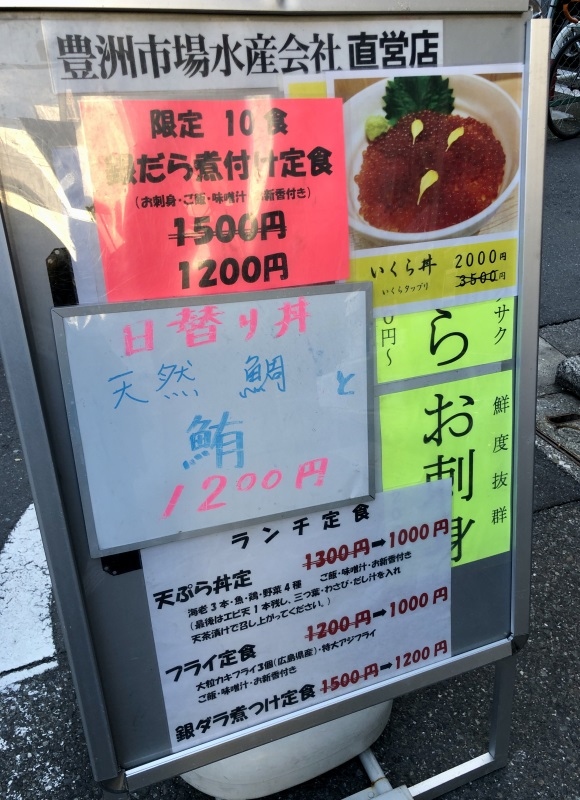 豊洲市場水産会社 直営店
限定 10食
銀だら煮付け定食
(お刺身・ご飯・味噌汁・お新香付き)
1500円
1200円
いくら丼 2000円
いくらタップリ 3500円
日替り丼
天然 鯛 と
鮪
1200円
サク
ら
円~
お刺身
鮮度抜群
ランチ定食
天ぷら丼定 1300円➡1000円
海老3本・魚・鶏・野菜4種 ご飯・味噌汁・お新香付き
(最後はエビ天1本残し、三つ葉・わさび・だし汁を入れ
天茶漬けで召し上がってください。)
フライ定食 1200円➡1000円
大粒カキフライ3個(広島県産)・特大アジフライ
ご飯・味噌汁・お新香付き
銀ダラ煮つけ定食 1500円➡1200円